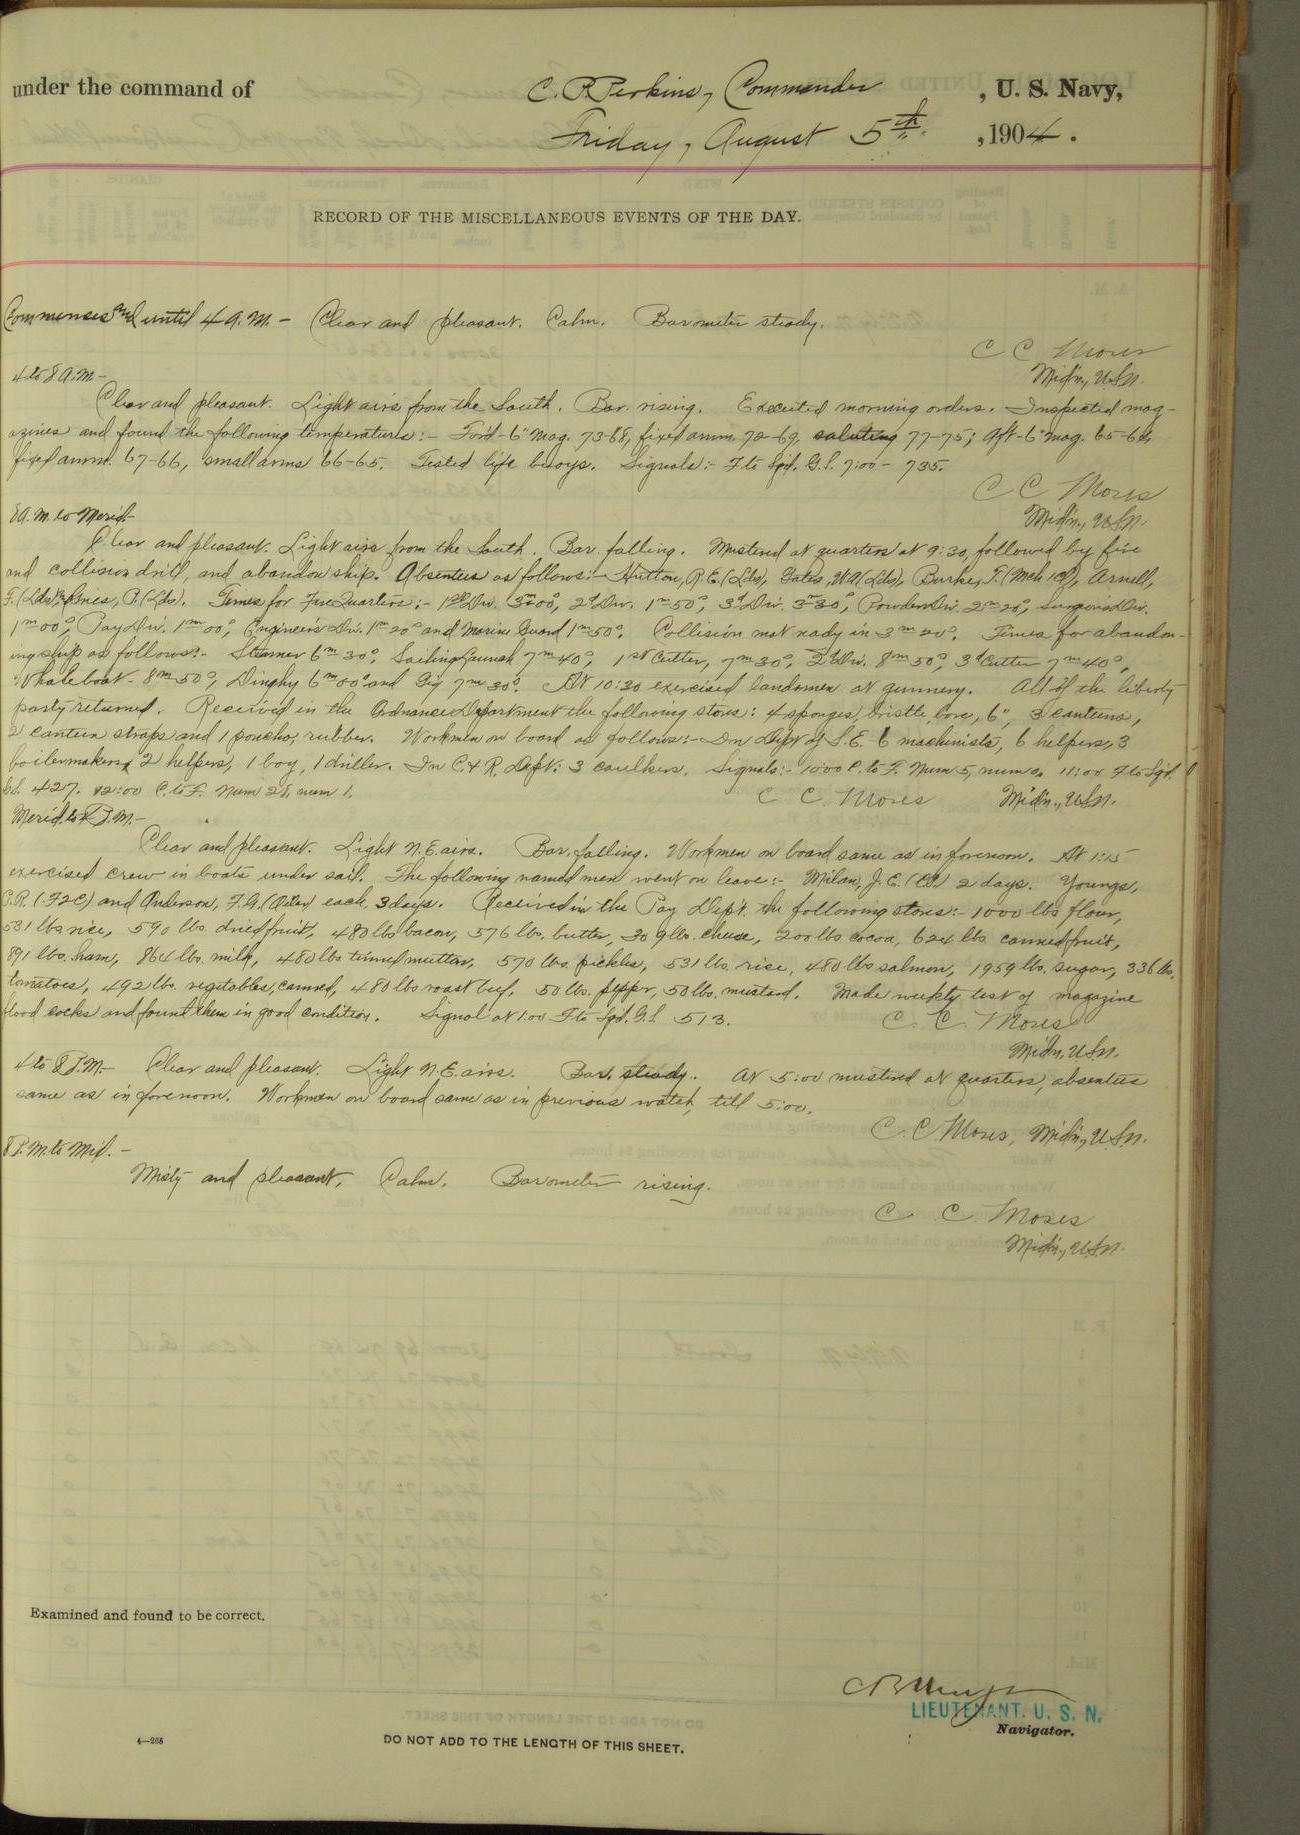 under the command of C. P. Perkins, Commander, U. S. Navy,
Friday, August 5th, 1904.
RECORD OF THE MISCELLANEOUS EVENTS OF THE DAY.
Commences and until 4 A.M. - Clear and pleasant. Calm. Barometer steady.
C C Moses
Mid'n, U.S.N.
4 to 8 A.M. -
Clear and pleasant. Light airs from the South. Bar. rising. Executed morning orders. Inspected mag-
azines and found the following temperatures:- For'd - 6" mag. 73-68, fixed amm. 72-69, saluting 77-75; Aft - 6" mag. 65-64,
fixed amm. 67-66, small arms 66-65. Tested life buoys. Signals:- F to Sqd. G.S. 7:00 - 735.
C C Moses
Mid'n, U.S.N.
8 A.M. to Merid. -
Clear and pleasant. Light airs from the South. Bar. falling. Mustered at quarters at 9:30, followed by fire
and collision drill, and abandon ship. Absentees as follows:- Hutton, R.E. (Lds), Yates, W.A. (Lds), Burke, T. (Mch 1Cl), Arnell,
F. (Lds), Jones, P. (Lds). Times for Fire Quarters:- 1st Div. 3m 00s, 2d Div. 1m 50s, 3d Div. 3m 30s, Powder Div. 2m 20s, Surgeon's Div.
1m 00s, Pay Div. 1m 00s, Engineer's Div. 1m 20s and Marine Guard 1m 50s. Collision mat ready in 3m 20s. Times for abandon-
ing ship as follows:- Steamer 6m 30s, Sailing Launch 7m 40s, 1st Cutter, 7m 30s, 2d Div. 8m 50s, 3d Cutter 7m 40s,
Whaleboat - 8m 50s, Dinghy 6m 00s and Gig 7m 30s. At 10:20 exercised landsmen at gunnery. All of the liberty
party returned. Received in the Ordnance Department the following stores: 4 sponges, bristle, bore, 6", 3 canteens,
2 canteen straps and 1 poncho, rubber. Workmen on board as follows:- In Dept of S.E. 6 machinists, 6 helpers, 3
boilermakers, 2 helpers, 1 boy, 1 driller. In C & R. Dept: 3 caulkers. Signals:- 10:00 P. to F. Num 5, num 0. 11:00 F to Sqd.
G.S. 427. 12:00 P. to F. Num 28, num 1. C C Moses Mid'n., U.S.N.
Merid. to 4 P.M. -
Clear and pleasant. Light N.E. airs. Bar. falling. Workmen on board same as in forenoon. At 1:15
exercised crew in boats under sail. The following named men went on leave:- Milan, J.E. 2 days. Youngs,
C.R. (F2C) and Anderson, F.G. each, 3 days. Received in the Pay Dep't. the following stores:- 1000 lbs flour,
531 lbs rice, 590 lbs. dried fruit, 480 lbs bacon, 576 lbs. butter, 309 lbs. cheese, 200 lbs cocoa, 624 lbs. canned fruit,
891 lbs. ham, 864 lbs. milk, 480 lbs tinned mutton, 570 lbs. pickles, 531 lbs. rice, 480 lbs salmon, 1959 lbs. sugar, 336 lbs.
tomatoes, 492 lbs. vegetables, canned, 480 lbs roast beef, 50 lbs. pepper, 50 lbs. mustard. Made weekly test of magazine
flood cocks and found them in good condition. Signal at 1:00 F to Sqd. G.S. 513. C. C. Moses
Mid'n, U.S.N.
4 to 8 P.M. - Clear and pleasant. Light N.E. airs. Bar. steady. At 5:00 mustered at quarters, absentees
same as in forenoon. Workmen on board same as in previous watch, till 5:00.
C. C. Moses, Mid'n, U.S.N.
8 P.M. to Mid. -
Misty and pleasant. Calm. Barometer rising.
C. C. Moses
Mid'n., U.S.N.
Examined and found to be correct.
LIEUTENANT. U. S. N.
Navigator.
4-268
DO NOT ADD TO THE LENGTH OF THIS SHEET.